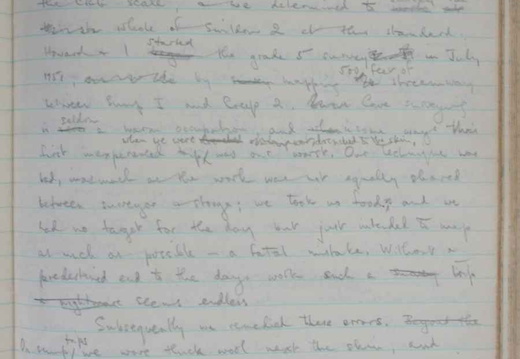 the CRG scale, & we determined to
the whole of Swildons 2 at this standard.
Howard & I started the grade 5 survey in July
by mapping 500 feet of streamway
between Sump I and Creep 2. Cave surveying
is seldom a warm occupation, and in some ways
when we were
first inexperienced was our worst. Our technique was
bad, inasmuch as the work was not equally shared
between surveyor & stooge; we took no food, and we
had no target for the day but just intended to map
as much as possible – a fatal mistake. Without a
predestined end to the days work such a survey trip
a nightmare seems endless
Subsequently we remedied these errors. Beyond the
trips
sump, we wore thick wool next the skin, and